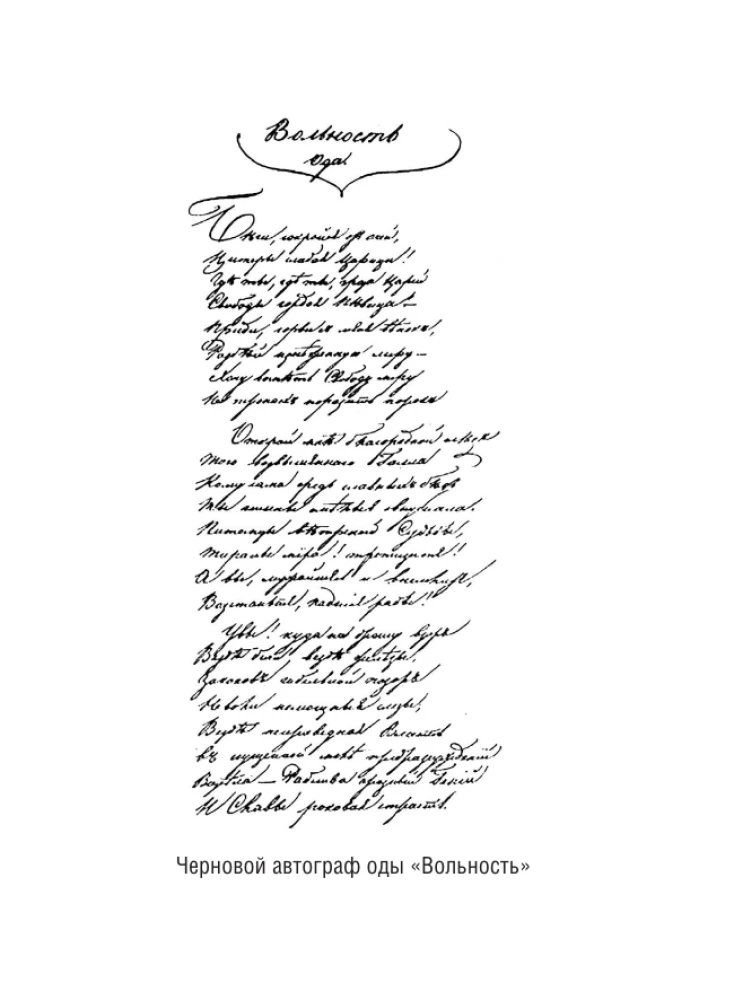 Вольность
Ода
Бѣги, сокройся отъ очей,
Цитеры слабая Царица!
Гдѣ ты, гдѣ ты, гроза Царей
Свободы гордая пѣвица —
Приди, сорви съ меня вѣнокъ,
Разбѣй изнѣженную лиру —
Хочу воспѣть Свободу міру
На тронахъ поразить порокъ
Открой мнѣ благородный слѣдъ
Того возвышеннаго Галла
Кому сама средь славныхъ бѣдъ
Ты гимны смѣлые внушала.
Питомцы вѣтреной Судьбы,
Тираны міра! трепещите!
А вы, мужайтесь и внемлите,
Возстаньте, падшіе рабы!
Увы! куда ни брошу взоръ
Вездѣ бичи, вездѣ желѣзы,
Законовъ гибельной позоръ
Неволи немощные слезы;
Вездѣ неправедная Власть
въ сгущенной мглѣ предразсужденій
Возсѣла — Рабства грозный Геній
И Славы роковая страсть.
Черновой автограф оды «Вольность»